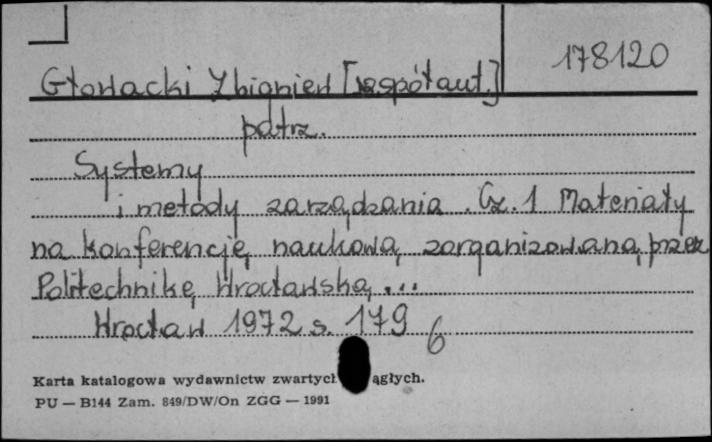 178120
Głowacki Zbigniew [współaut.]
patrz.
Systemy
i metody zarządzania. Cz. 1 Materiały
na konferencję naukową zorganizowaną przez
Politechnikę Wrocławską...
Wrocław 1972 s. 179
6
Karta katalogowa wydawnictw zwartych ągłych.
PU — B144 Zam. 849/DW/On ZGG — 1991